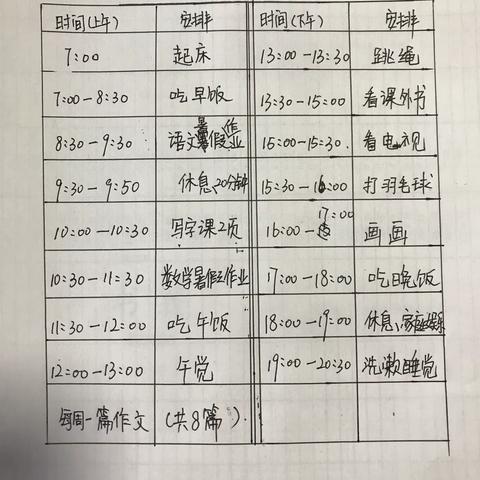 时间(上午) 安排 时间(下午) 安排
7:00 起床 13:00-13:30 跳绳
7:00-8:30 吃早饭 13:30-15:00 看课外书
8:30-9:30 语文暑假作业 15:00-15:30 看电视
9:30-9:50 休息20分钟 15:30-16:00 打羽毛球
10:00-10:30 写字课2页 16:00-17:00 画画
10:30-11:30 数学暑假作业 17:00-18:00 吃晚饭
11:30-12:00 吃午饭 18:00-19:00 休息、家庭
12:00-13:00 午觉 19:00-20:30 洗漱睡觉
每周一篇作文 (共8篇).